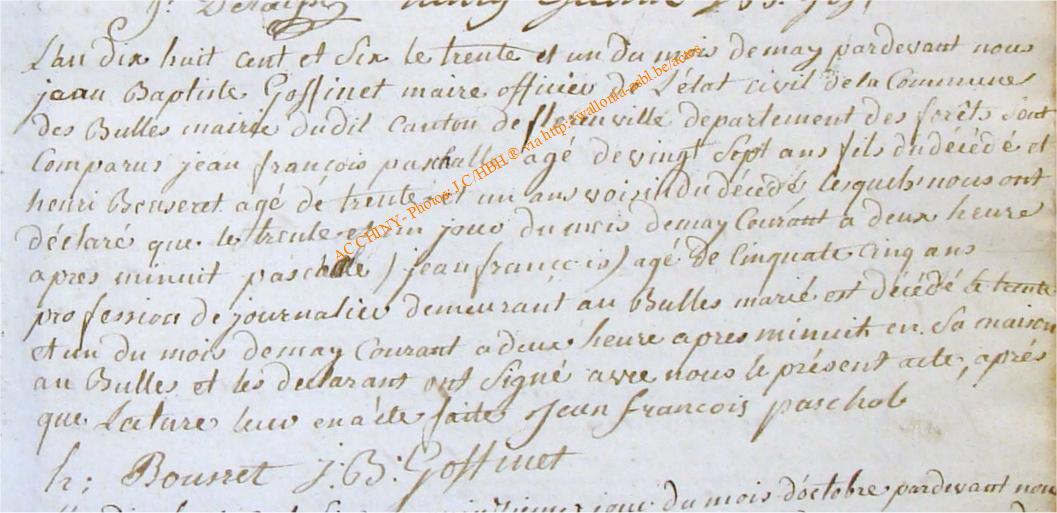 J. Delaisse henry
L'an dix huit cent et Six le trente et un du mois demay pardevant nous
jean Baptiste Goffinet maire officier De L'état civil dela Commune
des Bulles mairie dudil canton deflorenville departement des forêts Sont
Comparus jean françois paschalle agé devingt Sept ans fils dudécédé et
henri Bouseret agé dé trente et un ans voisin du décédé lesquels nous ont
déclaré que le trente et un jour du mois demay Courant a deux heure
apres minuit paschalle ) jean françois ) agé de Cinquate Cinq ans
profession de journalier demeurant au Bulles marié est décédé le trente
et un du mois demay Courant a deux heure apres minuit en Sa maison
au Bulles et lés declarant ont Signé avec nous le présent acte, aprés
que Lature leur en a éte faite Jean françois paschal
h: Bouseret J: B: Goffinet
jour du mois d'octobre pardevant nous
AC CHINY - Photos J.C/HBH ® via http://wallonia-asbl.be/actes